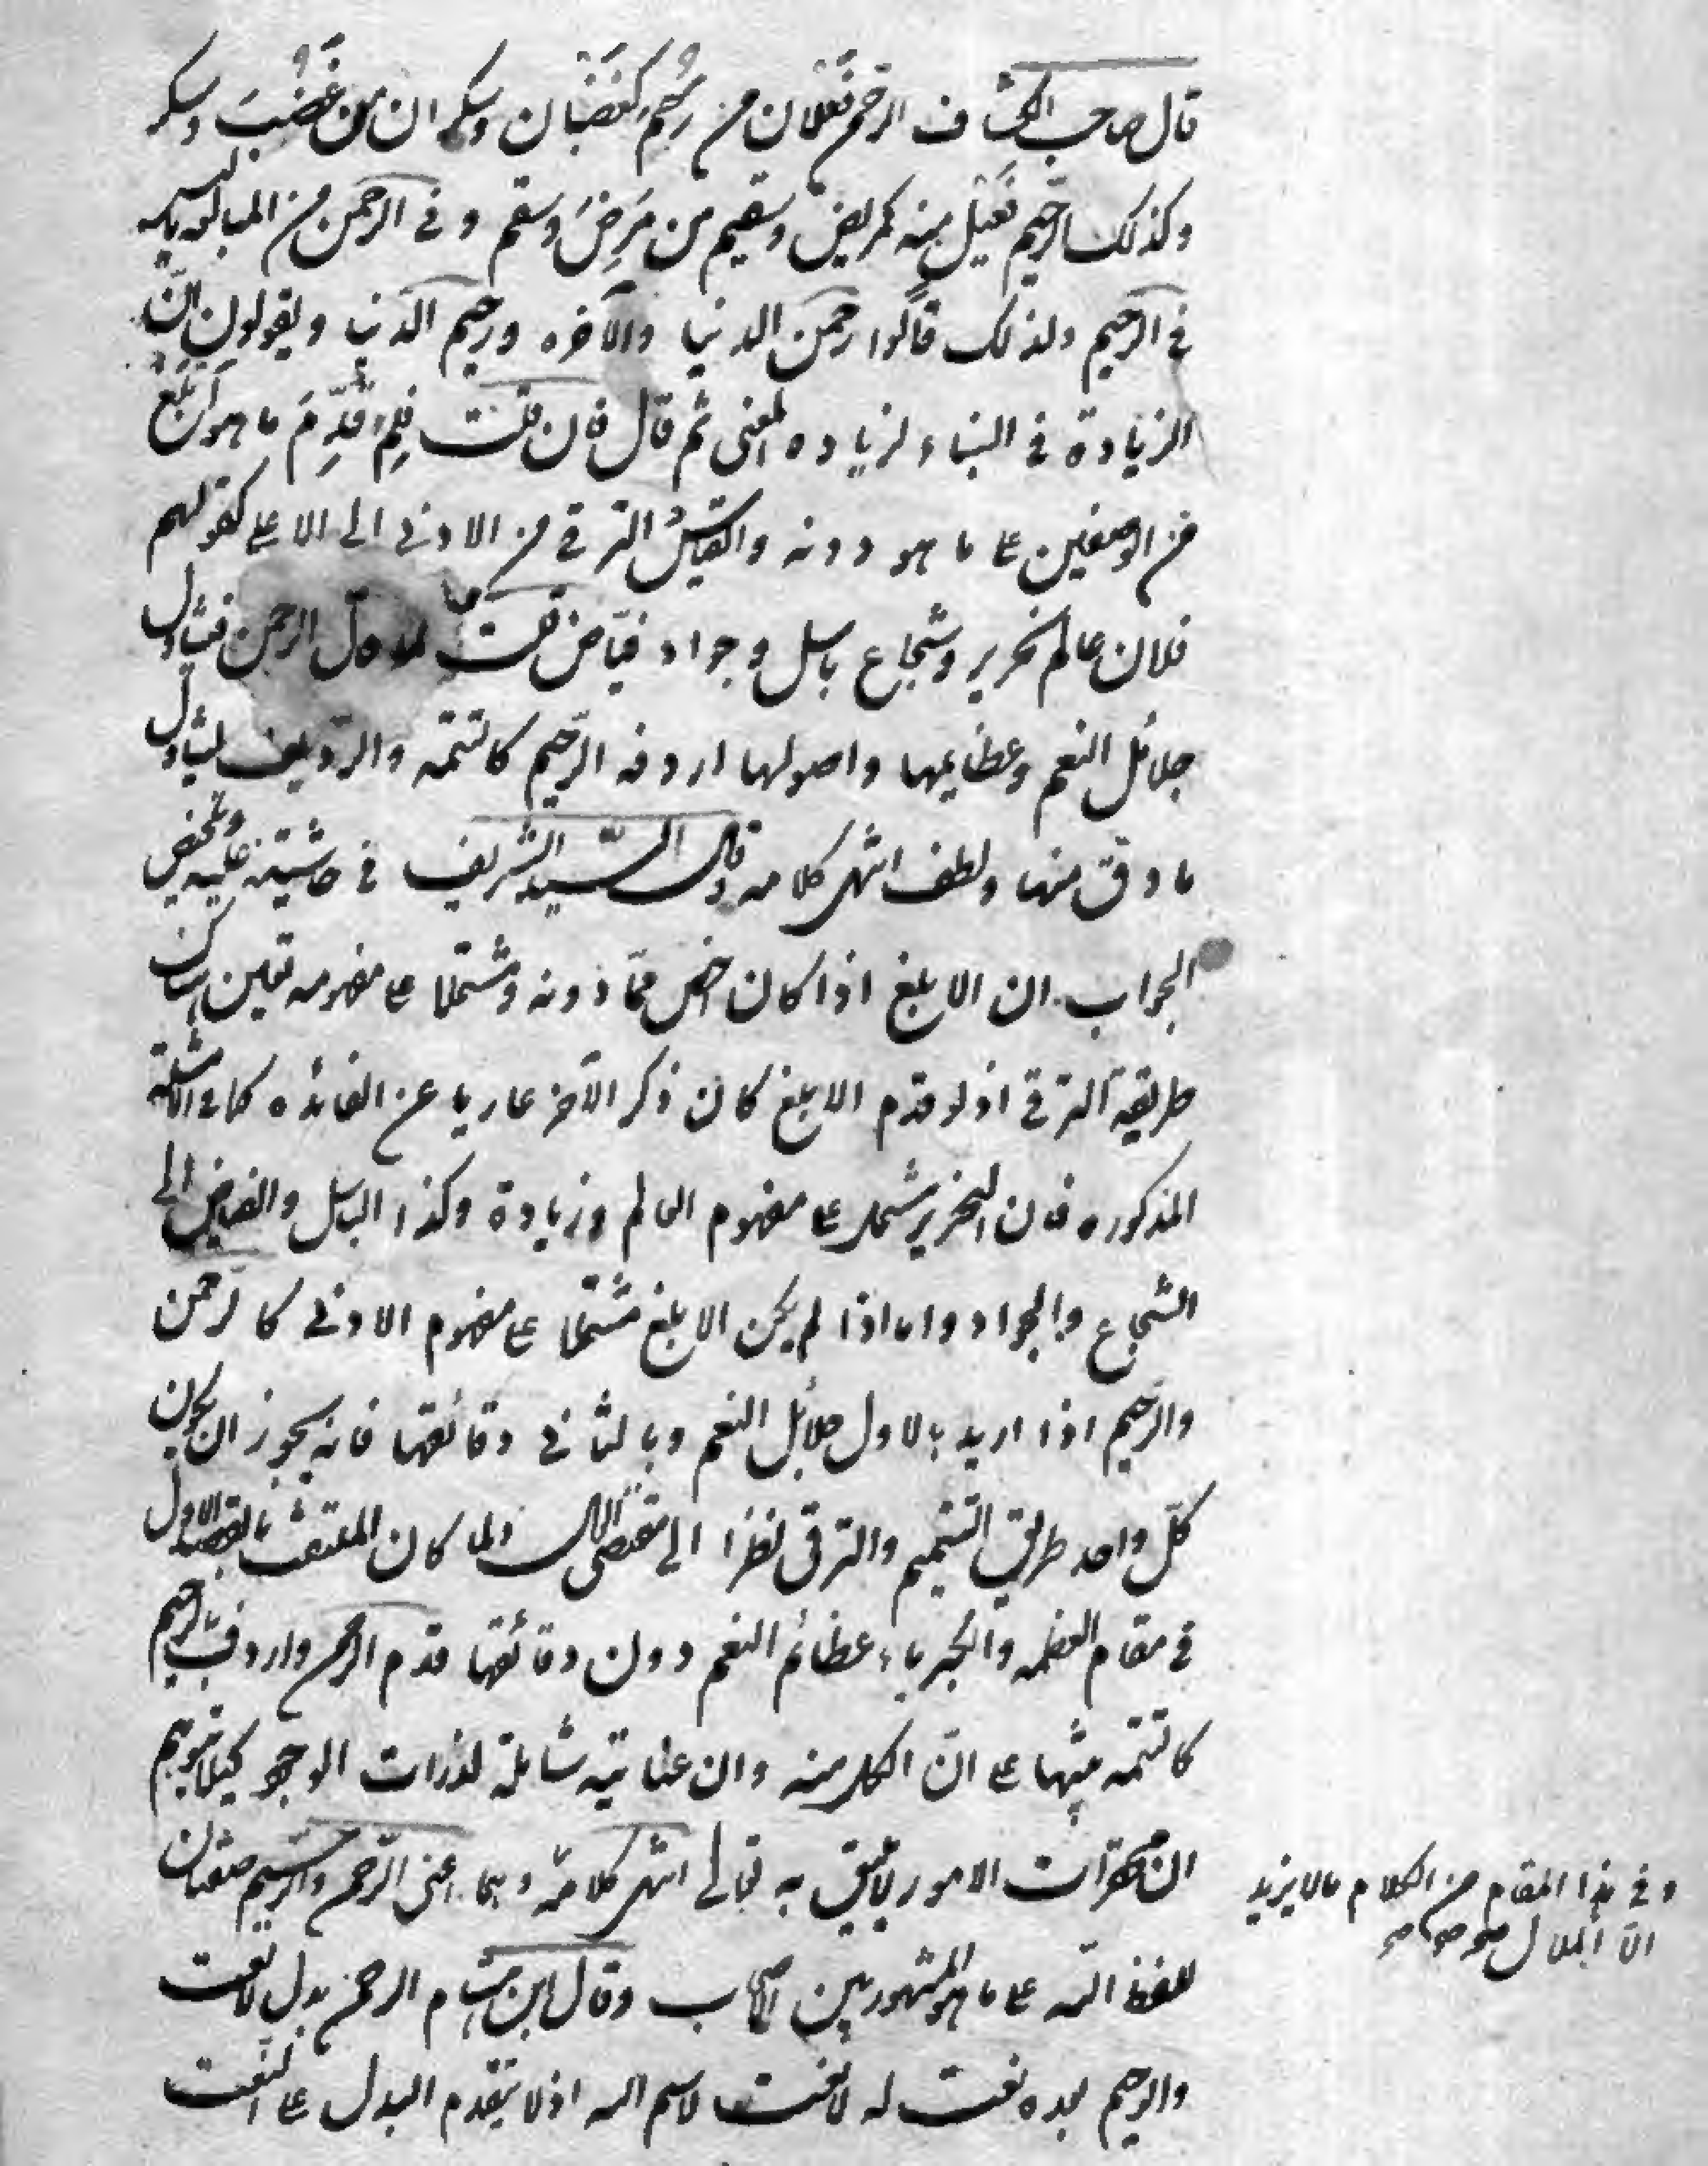 قال صاحب الكشاف الرحمن فعلان من رحم كغضبان وسكران من غضب وسكر
وكذلك الرحيم فعيل منه كمريض وسقيم من مرض وسقم وفي الرحمن من المبالغة ما ليس
في الرحيم ولذلك قالوا رحمن الدنيا والآخره ورحيم الدنيا ويقولون ان
الزيادة في البناء لزياده المعنى ثم قال فان قلت فلم قدم ما هو ابلغ
من الوصفين على ما هو دونه والقياس الترقي من الادنى الى الاعلى كقولهم
فلان عالم نحرير وشجاع باسل وجواد فياض قلت لما قال الرحمن فتناول
جلائل النعم وعظايمها واصولها اردفه الرحيم كالتتمه والرديف ليتناول
ما دق منها ولطف انتهى كلامه وقال السيد الشريف في حاشيته عليه وملخص
الجواب ان الابلغ اذا كان اخص مما دونه ومشتملا على مفهومه تعين هناك
طريقة الترقي اذ لو قدم الابلغ كان ذكر الآخر عاريا عن الفائده كما في الامثلة
المذكوره فان النحرير مشتمل على مفهوم العالم وزيادة وكذا الباسل والفياض الى
الشجاع والجواد واما اذا لم يكن الابلغ مشتملا على مفهوم الادنى كالرحمن
والرحيم اذا اريد بالاول جلائل النعم وبالثاني دقائقها فانه يجوز ان يكون
كل واحد طريق التتميم والترقي نظرا الى مقتضى الحال ولما كان الملتفت بالقصد الاول
في مقام العظمه والكبرياء عظائم النعم دون دقائقها قدم الرحمن واردف بالرحيم
كالتتمه تنبيها على ان الكل منه وان عنايته شاملة لذرات الوجود كيلا يتوهم
ان محقرات الامور لا يليق به تعالى انتهى كلامه وهما اعنى الرحمن والرحيم صفتان
للفظ الله على ما هو المشهور بين الاصحاب وقال ابن هشام الرحمن بدل لا نعت
والرحيم بعده نعت له لا نعت لاسم الله اذ لا يتقدم البدل على النعت
وفي هذا المقام من الكلام ما لا يزيد
الا الملال